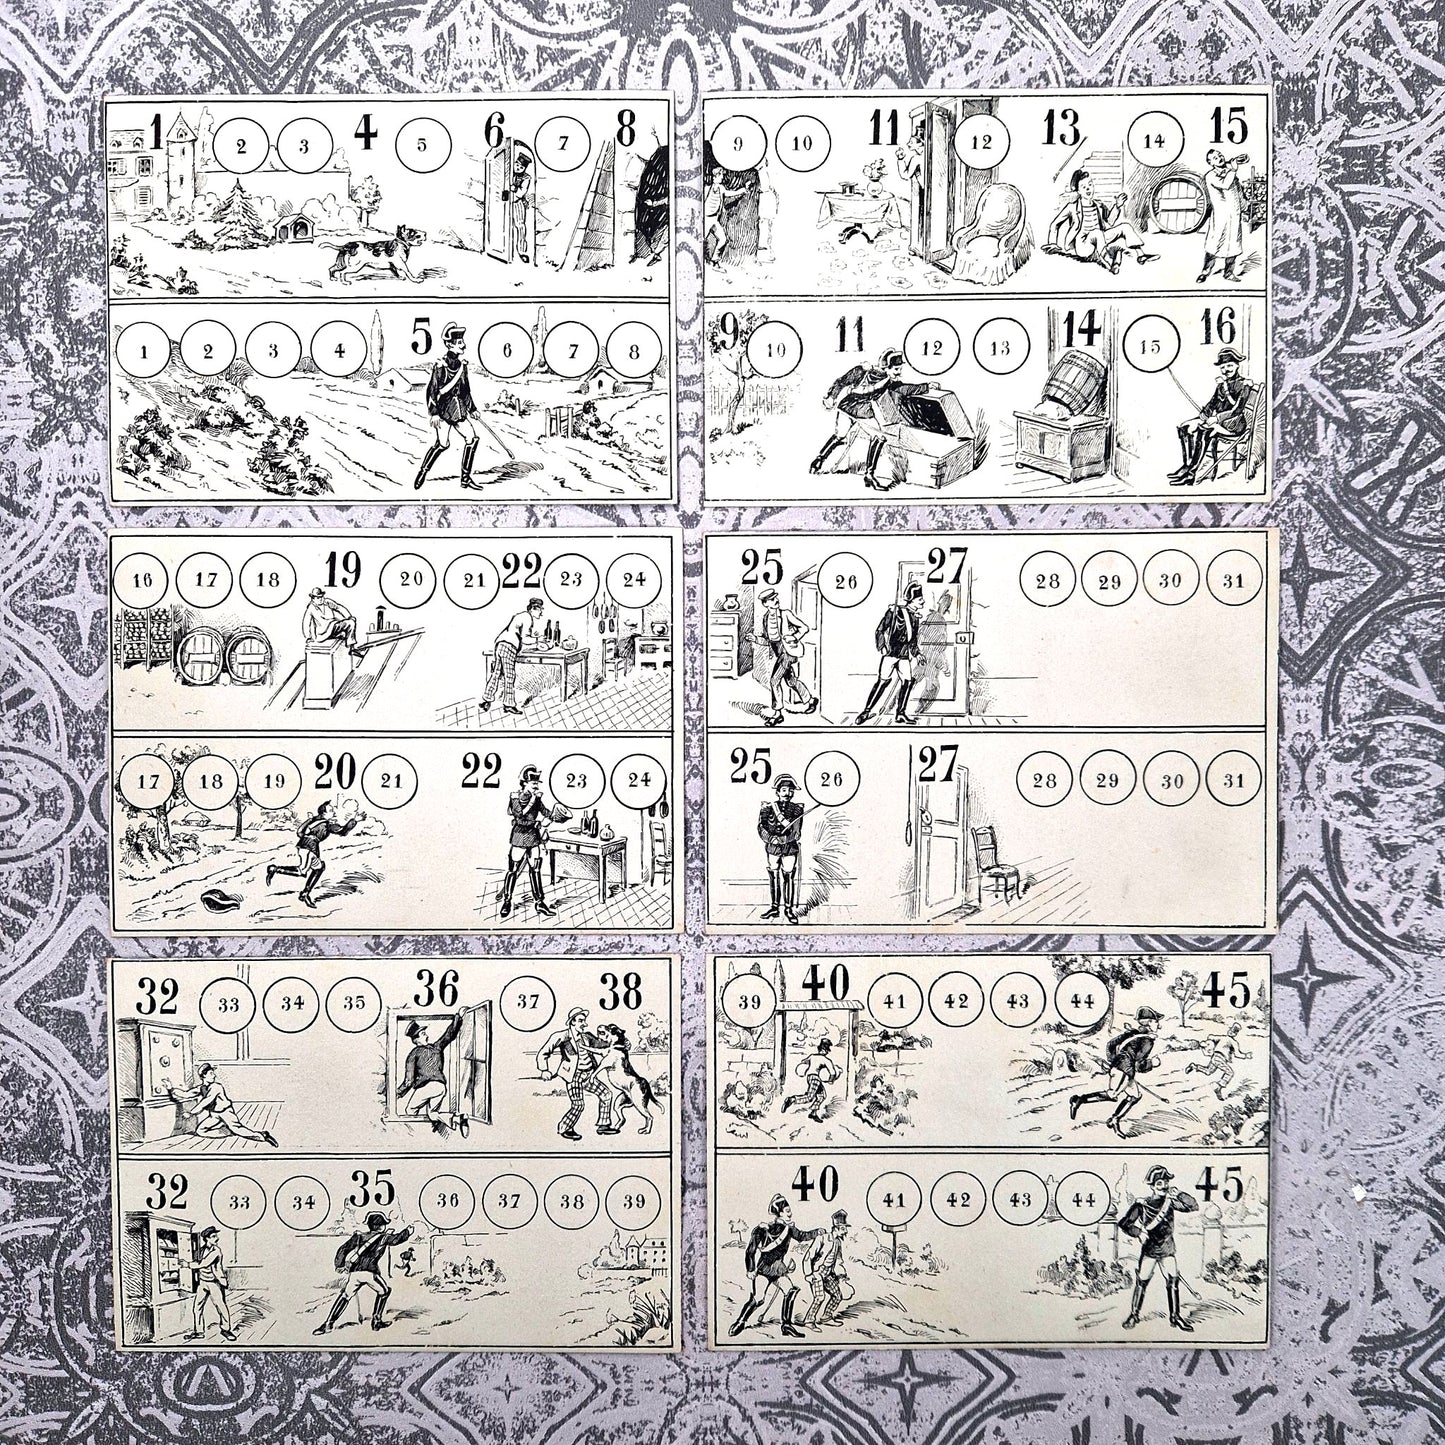 1 2 3 4 5 6 7 8
1 2 3 4 5 6 7 8
9 10 11 12 13 14 15
9 10 11 12 13 14 15 16
16 17 18 19 20 21 22 23 24
17 18 19 20 21 22 23 24
25 26 27 28 29 30 31
25 26 27 28 29 30 31
32 33 34 35 36 37 38
32 33 34 35 36 37 38 39
39 40 41 42 43 44 45
40 41 42 43 44 45